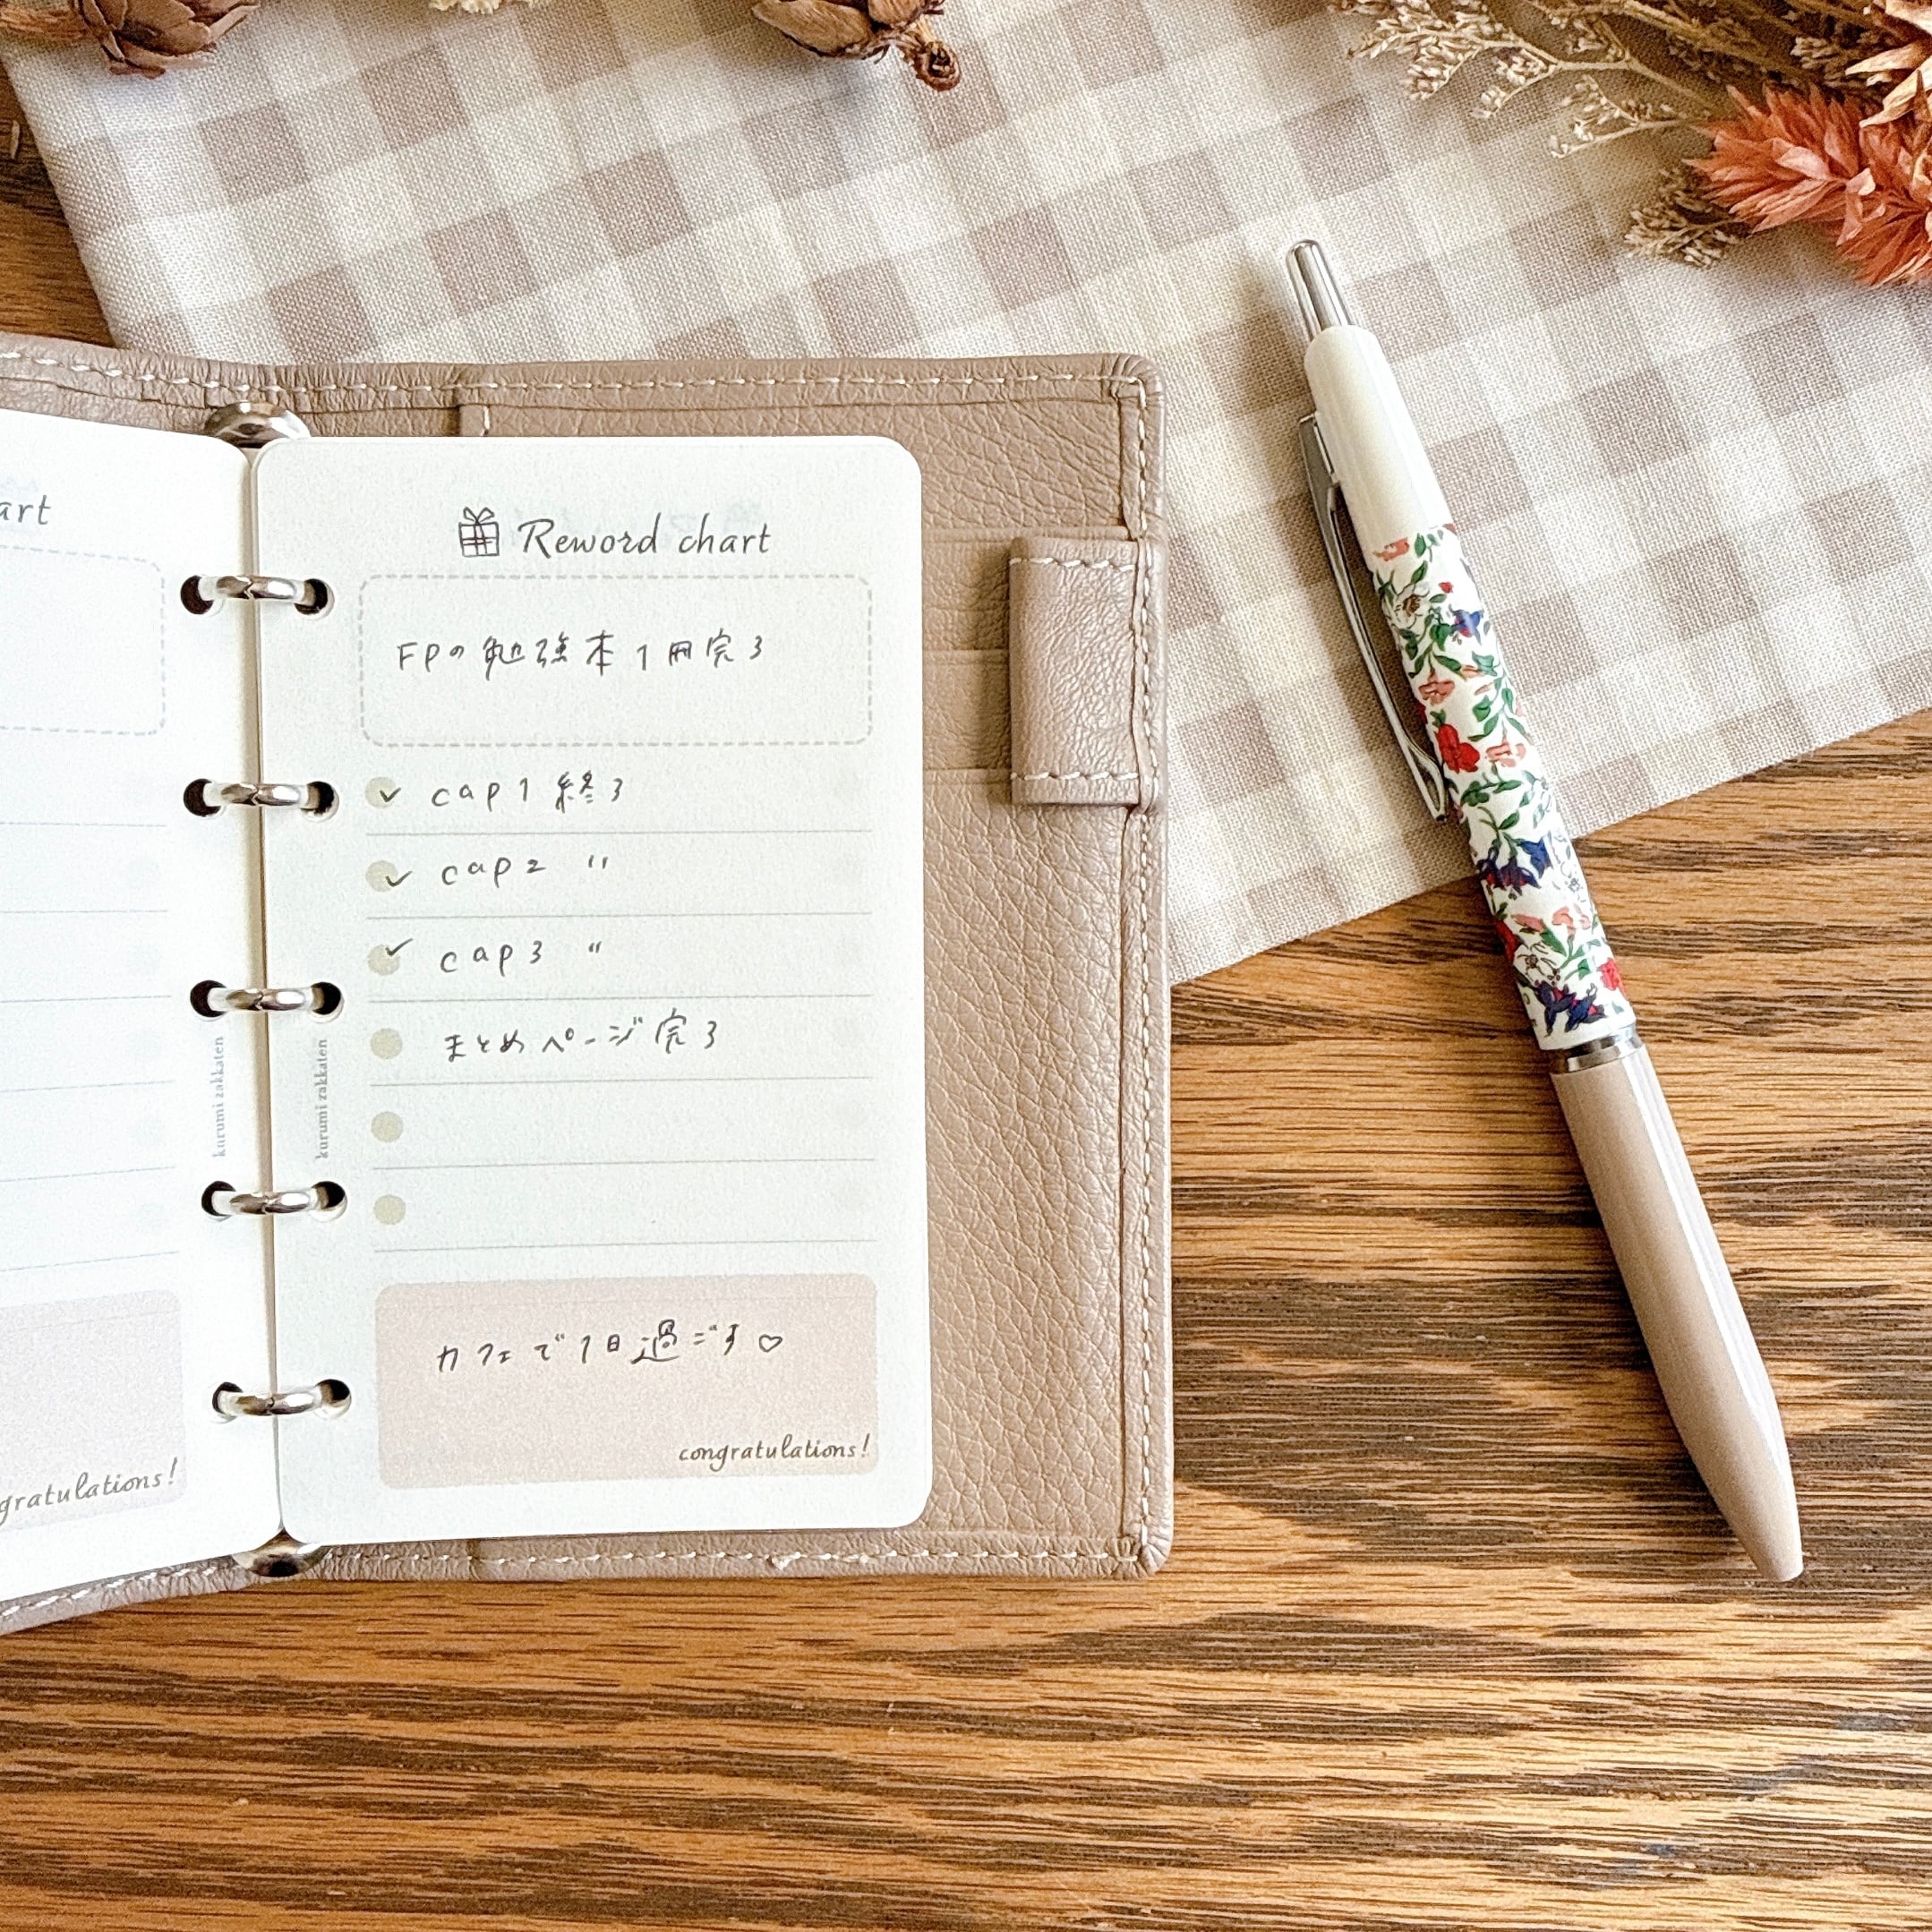 art
gratulations!
kurumi zakkaten
kurumi zakkaten
Reword chart
FPの勉強本1冊完了
cap1 終了
cap2 〃
cap3 〃
まとめページ完了
カフェで1日過ごす♡
congratulations!